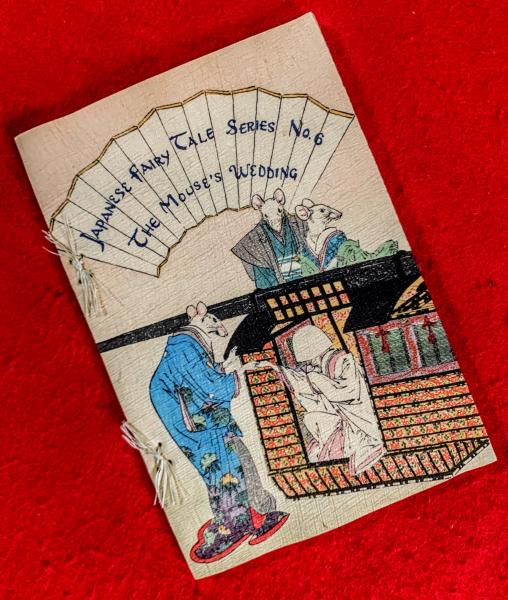 Japanese Fairy Tale Series No. 6
The Mouse's Wedding